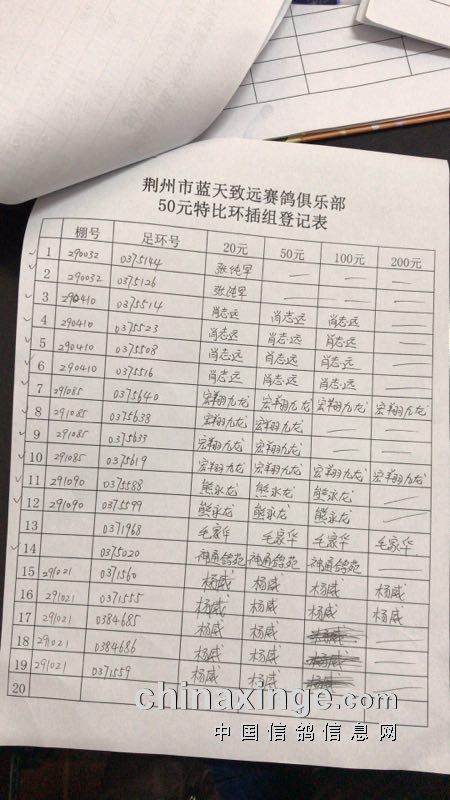 荆州市蓝天致远赛鸽俱乐部
50元特比环插组登记表
棚号 足环号 20元 50元 100元 200元
1 290032 0375144 张纯军 — — —
2 290032 0375126 张纯军 — — —
3 290410 0375514 肖志远 肖志远 肖志远 —
4 290410 0375523 肖志远 肖志远 肖志远
5 290410 0375508 肖志远 肖志远 肖志远
6 290410 0375516 肖志远 肖志远 肖志远
7 291085 0375640 宏翔九龙 宏翔九龙 宏翔九龙 宏翔九龙
8 291085 0375638 宏翔九龙 宏翔九龙 — —
9 291085 0375633 宏翔九龙 宏翔九龙 — —
10 291085 0375619 宏翔九龙 宏翔九龙 宏翔九龙 宏翔九龙
11 291090 0375588 熊永龙 熊永龙 熊永龙
12 291090 0375599 熊永龙 熊永龙 熊永龙 —
13 0371968 毛家华 毛家华 毛家华 毛家华
14 0375020 神通鸽苑 神通鸽苑 神通鸽苑
15 291021 0371560 杨威 杨威 杨威 杨威
16 291021 0371555 杨威 杨威 杨威 杨威
17 291021 0384685 杨威 杨威 杨威
18 291021 0384686 杨威 杨威 杨威 —
19 291021 0371559 杨威 杨威 杨威 —
20
chinaxinge.com
中国信鸽信息网